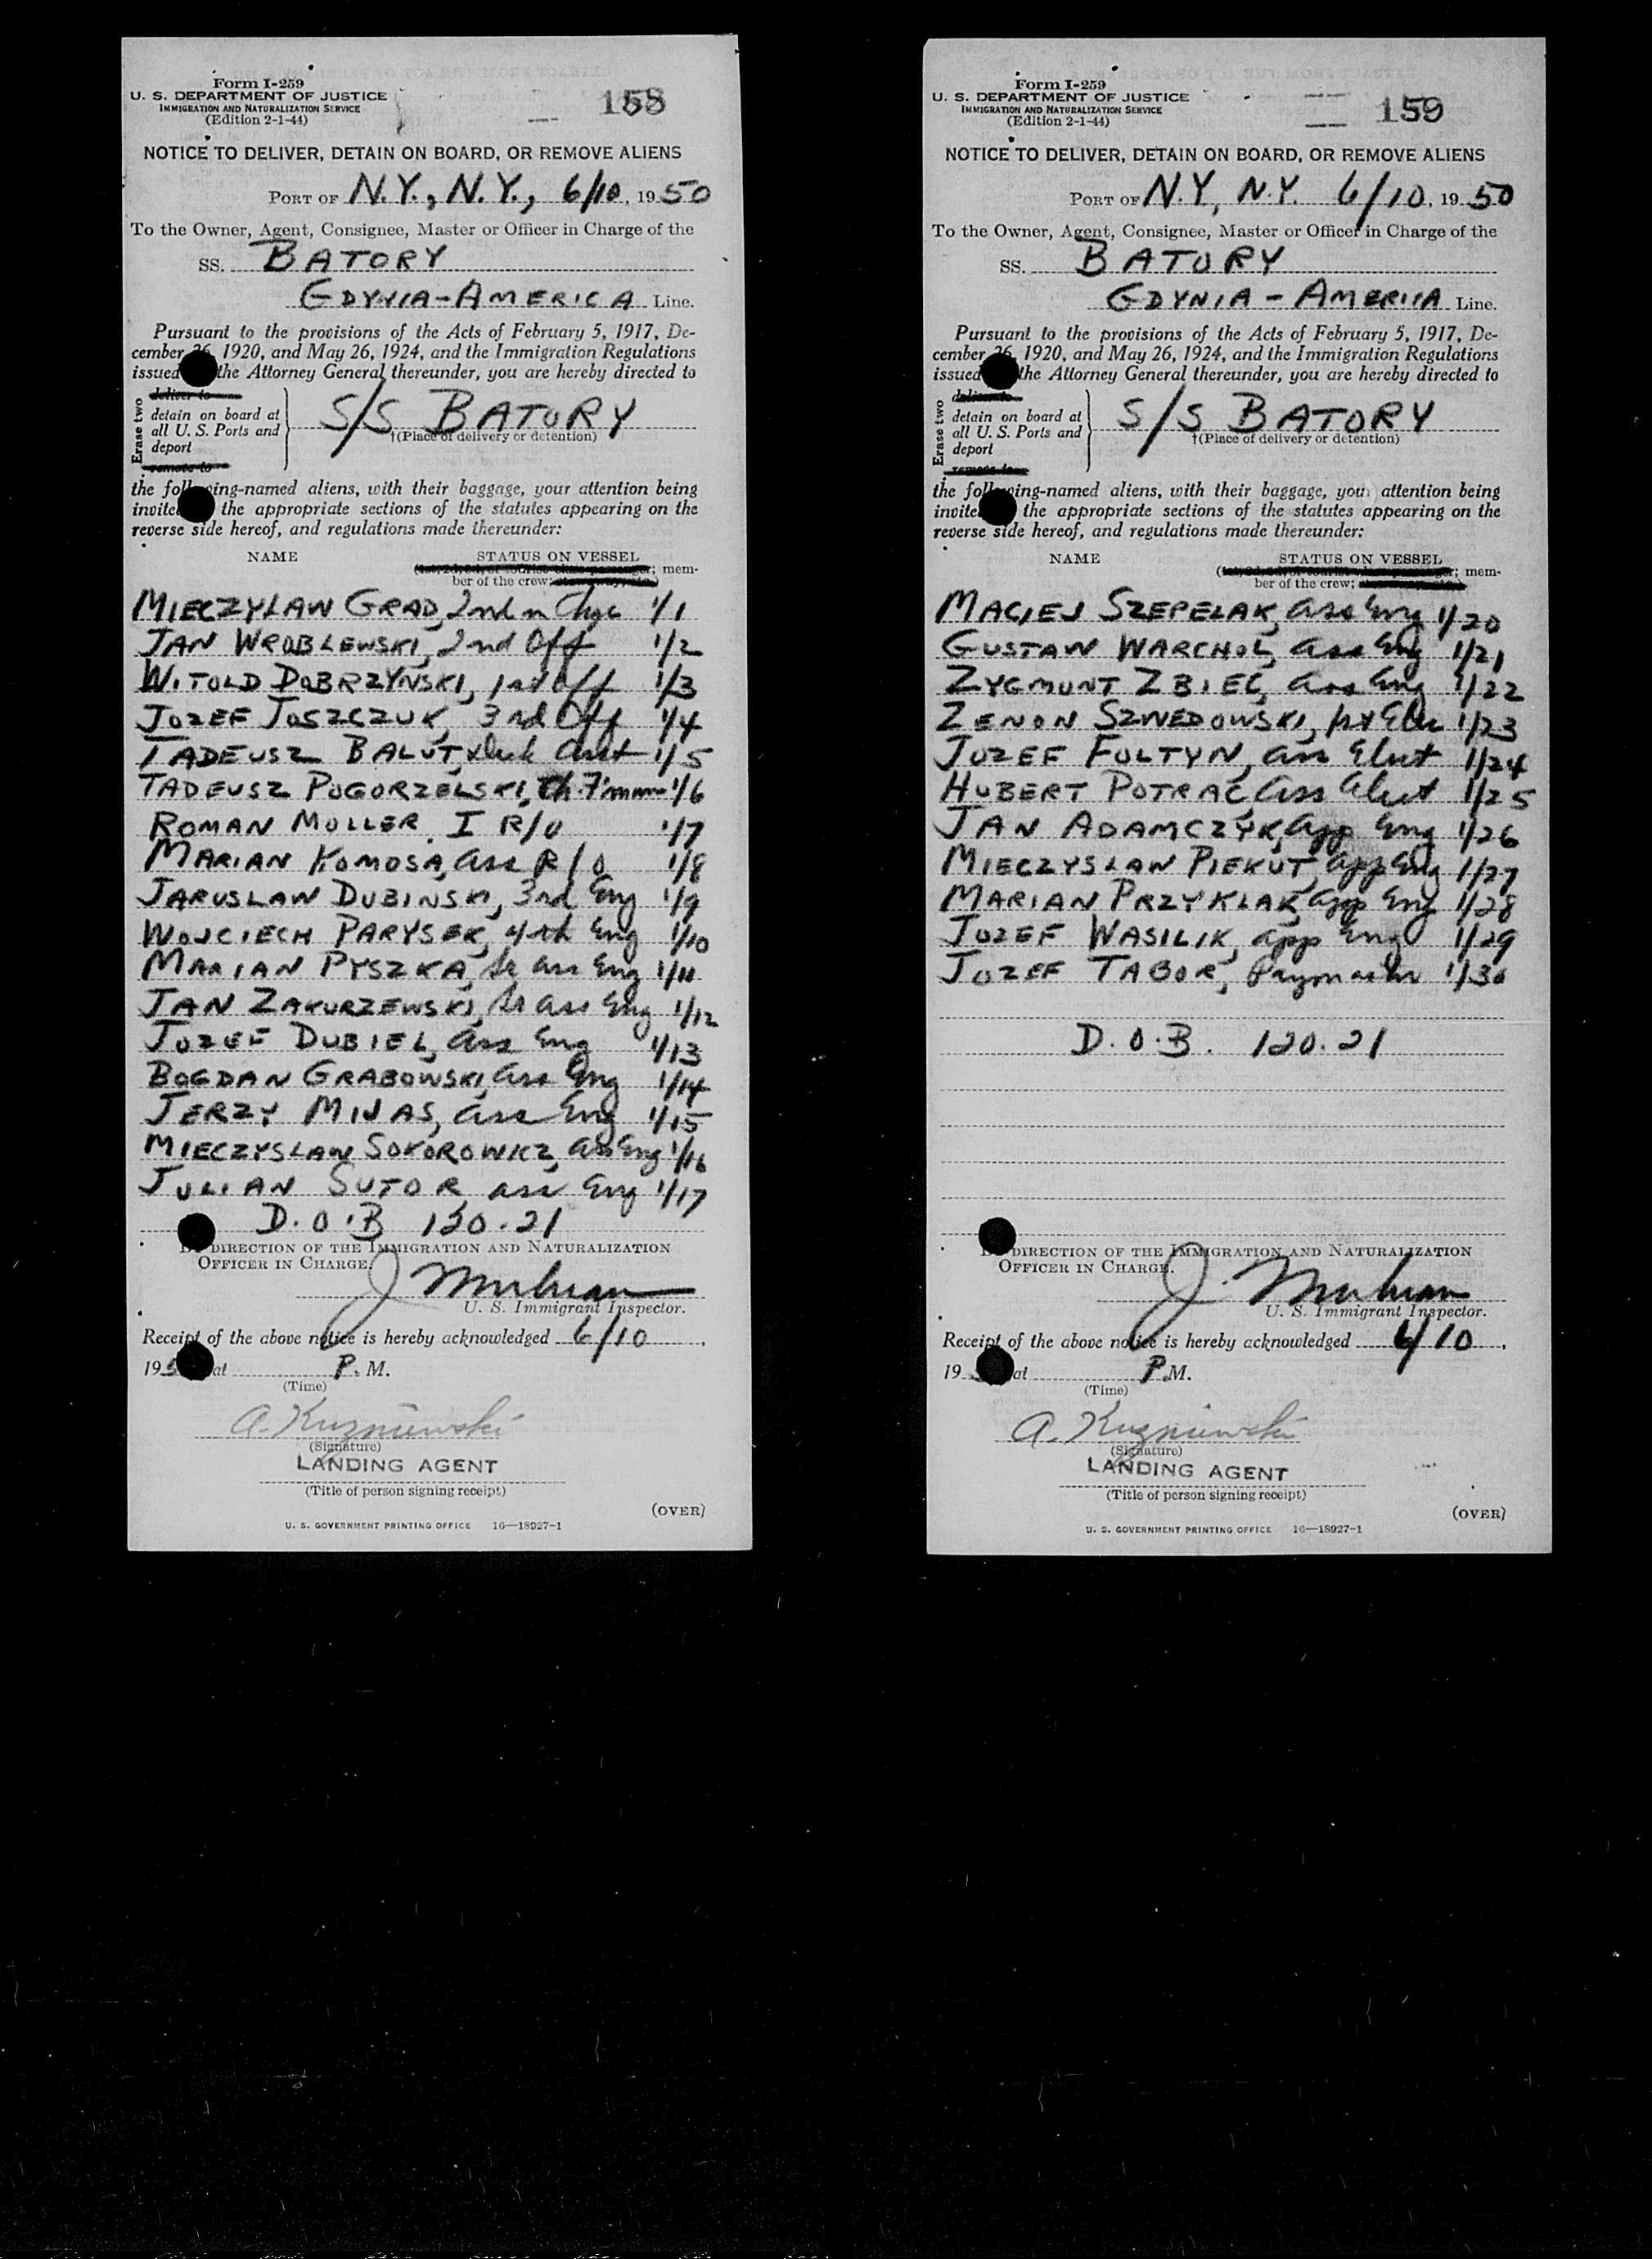 Form I-259
U. S. DEPARTMENT OF JUSTICE
IMMIGRATION AND NATURALIZATION SERVICE
(Edition 2-1-44)
158
NOTICE TO DELIVER, DETAIN ON BOARD, OR REMOVE ALIENS
PORT OF N.Y., N.Y., 6/10, 1950
To the Owner, Agent, Consignee, Master or Officer in Charge of the
SS. BATORY
GDYNIA-AMERICA Line.
Pursuant to the provisions of the Acts of February 5, 1917, De-
cember 26, 1920, and May 26, 1924, and the Immigration Regulations
issued the Attorney General thereunder, you are hereby directed to
Erase two
deliver to
detain on board at
all U. S. Ports and
deport
remove to
S/S BATORY
†(Place of delivery or detention)
the following-named aliens, with their baggage, your attention being
invited the appropriate sections of the statutes appearing on the
reverse side hereof, and regulations made thereunder:
NAME STATUS ON VESSEL
; mem-
ber of the crew;
MIECZYLAW GRAD, 2nd n Chge 1/1
JAN WROBLEWSKI, 2nd Off 1/2
WITOLD DOBRZYNSKI, 1st Off 1/3
JOZEF JOSZCZUK, 3rd Off 1/4
TADEUSZ BALUT, 1/5
TADEUSZ POGORZELSKI, Ch. 1/6
ROMAN MOLLER. I R/O 1/7
MARIAN KOMOSA, ass R/O 1/8
JAROSLAW DUBINSKI, 3rd Eng 1/9
WOJCIECH PARYSEK, 4th Eng 1/10
MARIAN PYSZKA, Sr ass Eng 1/11
JAN ZAKURZEWSKI, Sr ass Eng 1/12
JOZEF DUBIEL, ass Eng 1/13
BOGDAN GRABOWSKI, ass Eng 1/14
JERZY MIJAS, ass Eng 1/15
MIECZYSLAW SOKOROWICZ, ass Eng 1/16
JULIAN SUTOR, ass Eng 1/17
D.O.B 120.21
DIRECTION OF THE IMMIGRATION AND NATURALIZATION
OFFICER IN CHARGE.
J
U. S. Immigrant Inspector.
Receipt of the above notice is hereby acknowledged 6/10,
195 at P. M.
(Time)
A. Kuzniewski
(Signature)
LANDING AGENT
(Title of person signing receipt)
(OVER)
U. S. GOVERNMENT PRINTING OFFICE 16—18927-1
Form I-259
U. S. DEPARTMENT OF JUSTICE
IMMIGRATION AND NATURALIZATION SERVICE
(Edition 2-1-44)
159
NOTICE TO DELIVER, DETAIN ON BOARD, OR REMOVE ALIENS
PORT OF N.Y, N.Y. 6/10, 1950
To the Owner, Agent, Consignee, Master or Officer in Charge of the
SS. BATORY
GDYNIA - AMERICA Line.
Pursuant to the provisions of the Acts of February 5, 1917, De-
cember 26, 1920, and May 26, 1924, and the Immigration Regulations
issued the Attorney General thereunder, you are hereby directed to
Erase two
deliver to
detain on board at
all U. S. Ports and
deport
remove to
S/S BATORY
†(Place of delivery or detention)
the following-named aliens, with their baggage, your attention being
invited the appropriate sections of the statutes appearing on the
reverse side hereof, and regulations made thereunder:
NAME STATUS ON VESSEL
; mem-
ber of the crew;
MACIEJ SZEPELAK, ass Eng 1/20
GUSTAW WARCHOL, ass Eng 1/21
ZYGMUNT ZBIEC, ass Eng 1/22
ZENON SZWEDOWSKI, 1st Elec 1/23
JOZEF FOLTYN, ass Elect 1/24
HUBERT POTRAC ass Elect 1/25
JAN ADAMCZYK, app Eng 1/26
MIECZYSLAW PIEKUT, app Eng 1/27
MARIAN PRZYKLAK, app Eng 1/28
JOZEF WASILIK, app Eng 1/29
JOZEF TABOR, Paymaster 1/30
D.O.B. 120.21
DIRECTION OF THE IMMIGRATION AND NATURALIZATION
OFFICER IN CHARGE.
J.
U. S. Immigrant Inspector.
Receipt of the above notice is hereby acknowledged 6/10,
195 at P.M.
(Time)
A. Kuzniewski
(Signature)
LANDING AGENT
(Title of person signing receipt)
(OVER)
U. S. GOVERNMENT PRINTING OFFICE 16—18927-1